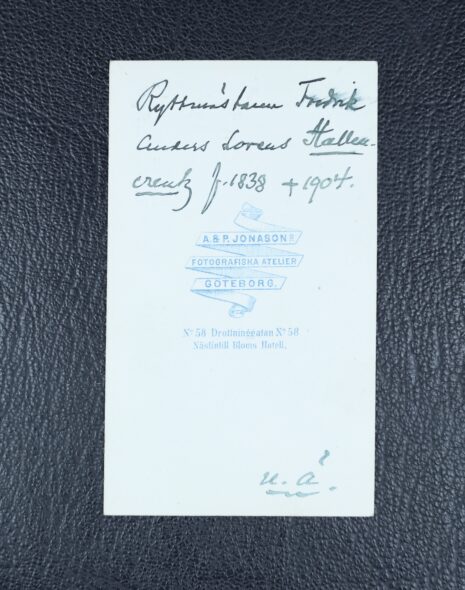 Ryttmästaren Fredrik
Anders Lorens Hallen-
creutz f. 1838 + 1904.
A. & P. JONASONS
FOTOGRAFISKA ATELIER
GÖTEBORG.
No 58 Drottninggatan No 58
Nästintill Bloms Hotell.
u. Å.